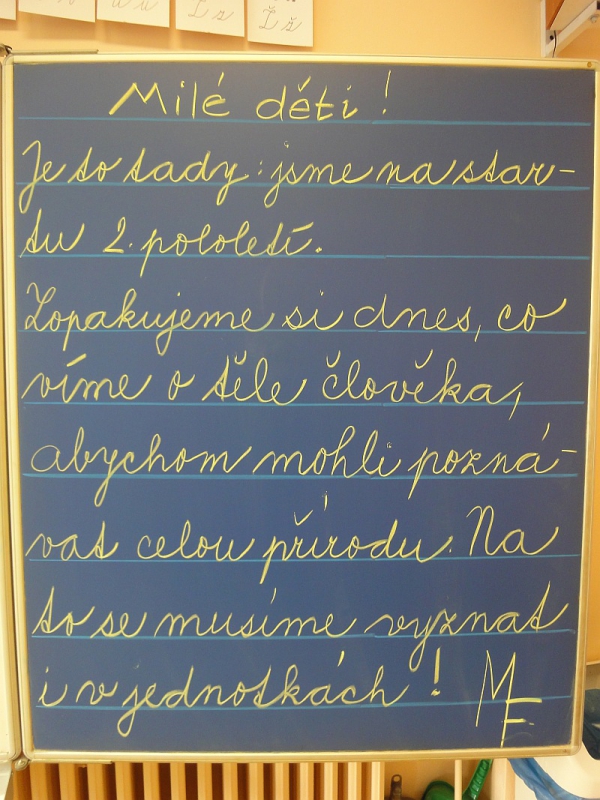 Milé děti!
Je to tady: jsme na star-
tu 2. pololetí.
Zopakujeme si dnes, co
víme o těle člověka,
abychom mohli pozná-
vat celou přírodu. Na
to se musíme vyznat
i v jednotkách! MF